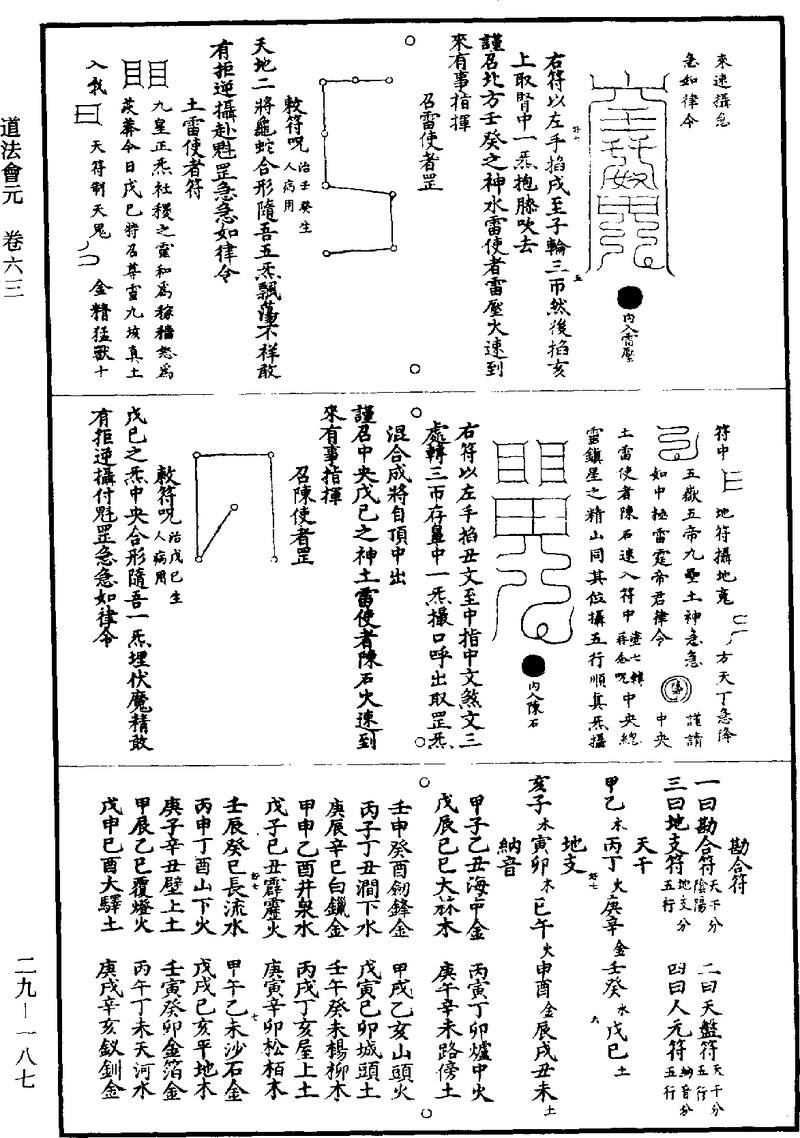 道法會元　卷六三
二九—一八七
來速攝急
急如律令
內入雷壓
右符以左手掐戌至子輪三帀然後掐亥
上取腎中一炁抱膝吹去
謹召北方壬癸之神水雷使者雷壓火速到
來有事指揮
召雷使者罡
敕符呪治壬癸生人病用
天地二將龜蛇合形隨吾五炁飄蕩不祥敢
有拒逆攝赴魁罡急急如律令
土雷使者符
九皇正炁社稷之靈和爲稼穡怒爲
茨棘今日戊巳將召尊靈九垓真土
入我　天符制天鬼　金精猛獸十
符中　地符攝地鬼　方天丁急降
五嶽五帝九壘土神急急　謹請
如中極雷霆帝君律令　中央
土雷使者陳石速入符中　中央總
雲鎮星之精山同其位攝五行順真炁攝
內入陳石
右符以左手掐丑文至中指中文煞文三
處轉三帀存鼻中一炁撮口呼出取罡炁
混合成將自頂中出
謹召中央戊巳之神土雷使者陳石火速到
來有事指揮
召陳使者罡
敕符呪治戊巳生人病用
戊巳之炁中央合形隨吾一炁埋伏魔精敢
有拒逆攝付魁罡急急如律令
勘合符
一曰勘合符天干分陰陽　二曰天盤符天干分五行
三曰地支符地支分五行　四曰人元符納音分五行
天干
甲乙木丙丁火庚辛金壬癸水戊巳土
地支
亥子水寅卯木巳午火申酉金辰戌丑未土
納音
甲子乙丑海中金　丙寅丁卯爐中火
戊辰巳巳大林木　庚午辛未路傍土
壬申癸酉劒鋒金　甲戌乙亥山頭火
丙子丁丑澗下水　戊寅巳卯城頭土
庚辰辛巳白鑞金　壬午癸未楊柳木
甲申乙酉井泉水　丙戌丁亥屋上土
戊子巳丑霹靂火　庚寅辛卯松栢木
壬辰癸巳長流水　甲午乙未沙石金
丙申丁酉山下火　戊戌巳亥平地木
庚子辛丑壁上土　壬寅癸卯金箔金
甲辰乙巳覆燈火　丙午丁未天河水
戊申巳酉大驛土　庚戌辛亥釵釧金